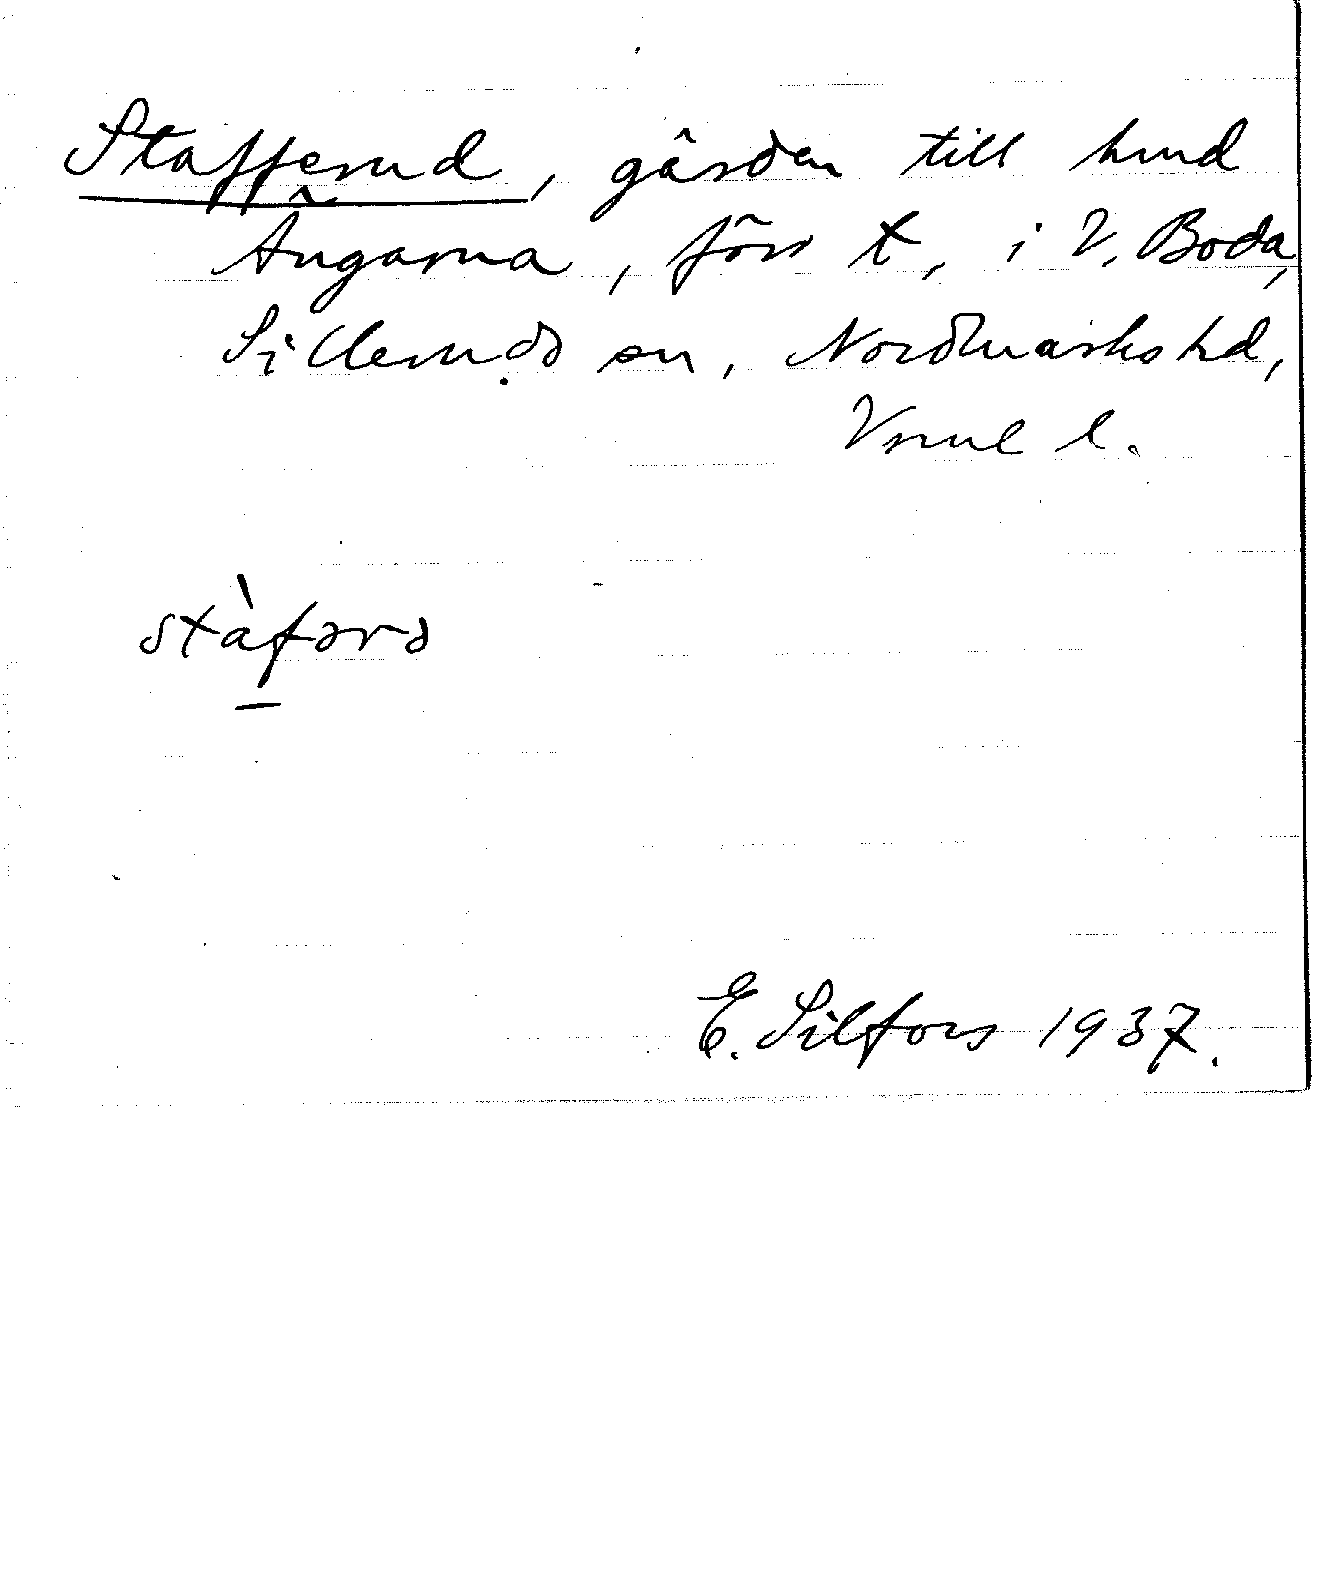 Stafferud, gården till hmd
Ängarna, förr t, i V. Boda,
Silleruds sn, Nordmarks hd,
Vrml l.
stàfərə
E. Silfors 1937.